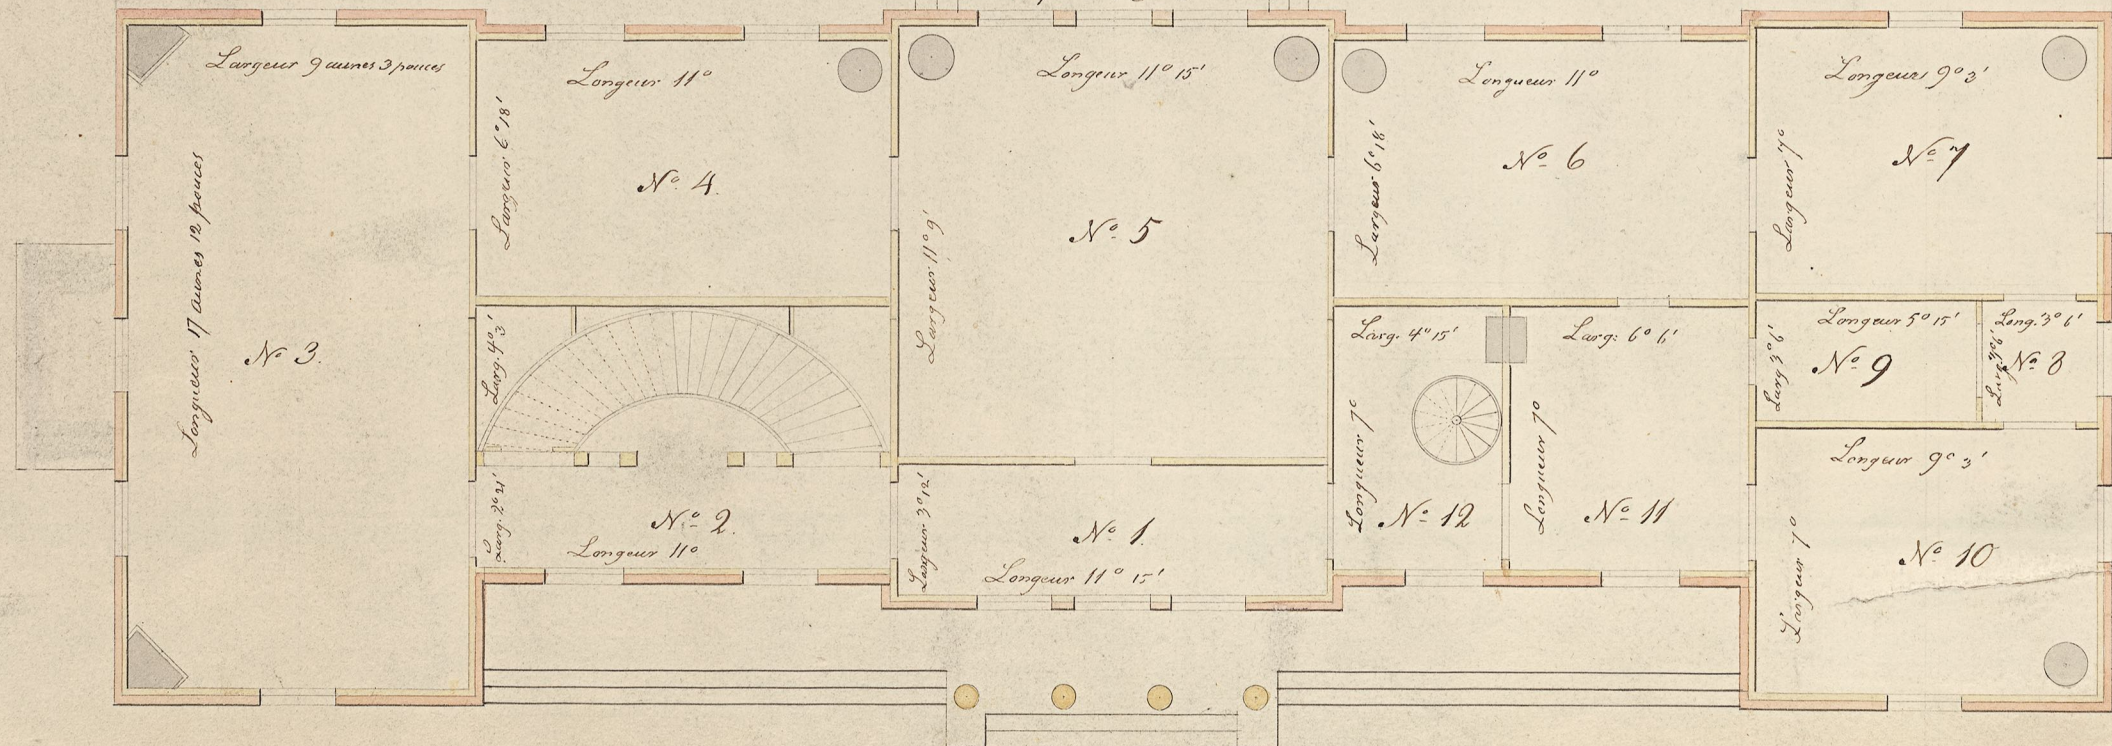 Largeur 9 aunes 3 pouces
Longueur 17 aunes 12 pouces
No 3.
Longeur 11o
Largeur 6o 18'
No. 4.
Larg. 4o 3'
Larg. 2o 21'
No. 2.
Longeur 11o
Longeur 11o 15'
Largeur 11o 9'
No. 5
Largeur 3o 12'
No. 1.
Longeur 11o 15'
Longueur 11o
Largeur 6o 18'
No. 6
Larg. 4o 15'
Longueur 7o
No. 12
Larg: 6o 6'
Longueur 7o
No. 11
Longeur 9o 3'
Largeur 7o
No. 7
Longeur 5o 15'
Larg 3o 6'
No. 9
Long. 3o 6'
No. 8
Longeur 9o 3'
Largeur 7o
No. 10